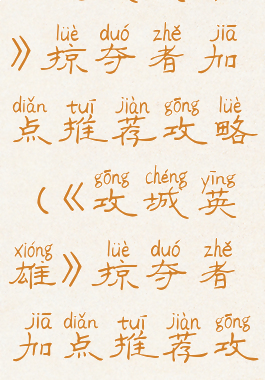 lüè duó zhě jiā
》掠夺者加
diǎn tuī jiàn gōng lüè
点推荐攻略
gōng chéng yīng
(《攻城英
xióng lüè duó zhě
雄》掠夺者
jiā diǎn tuī jiàn gōng
加点推荐攻